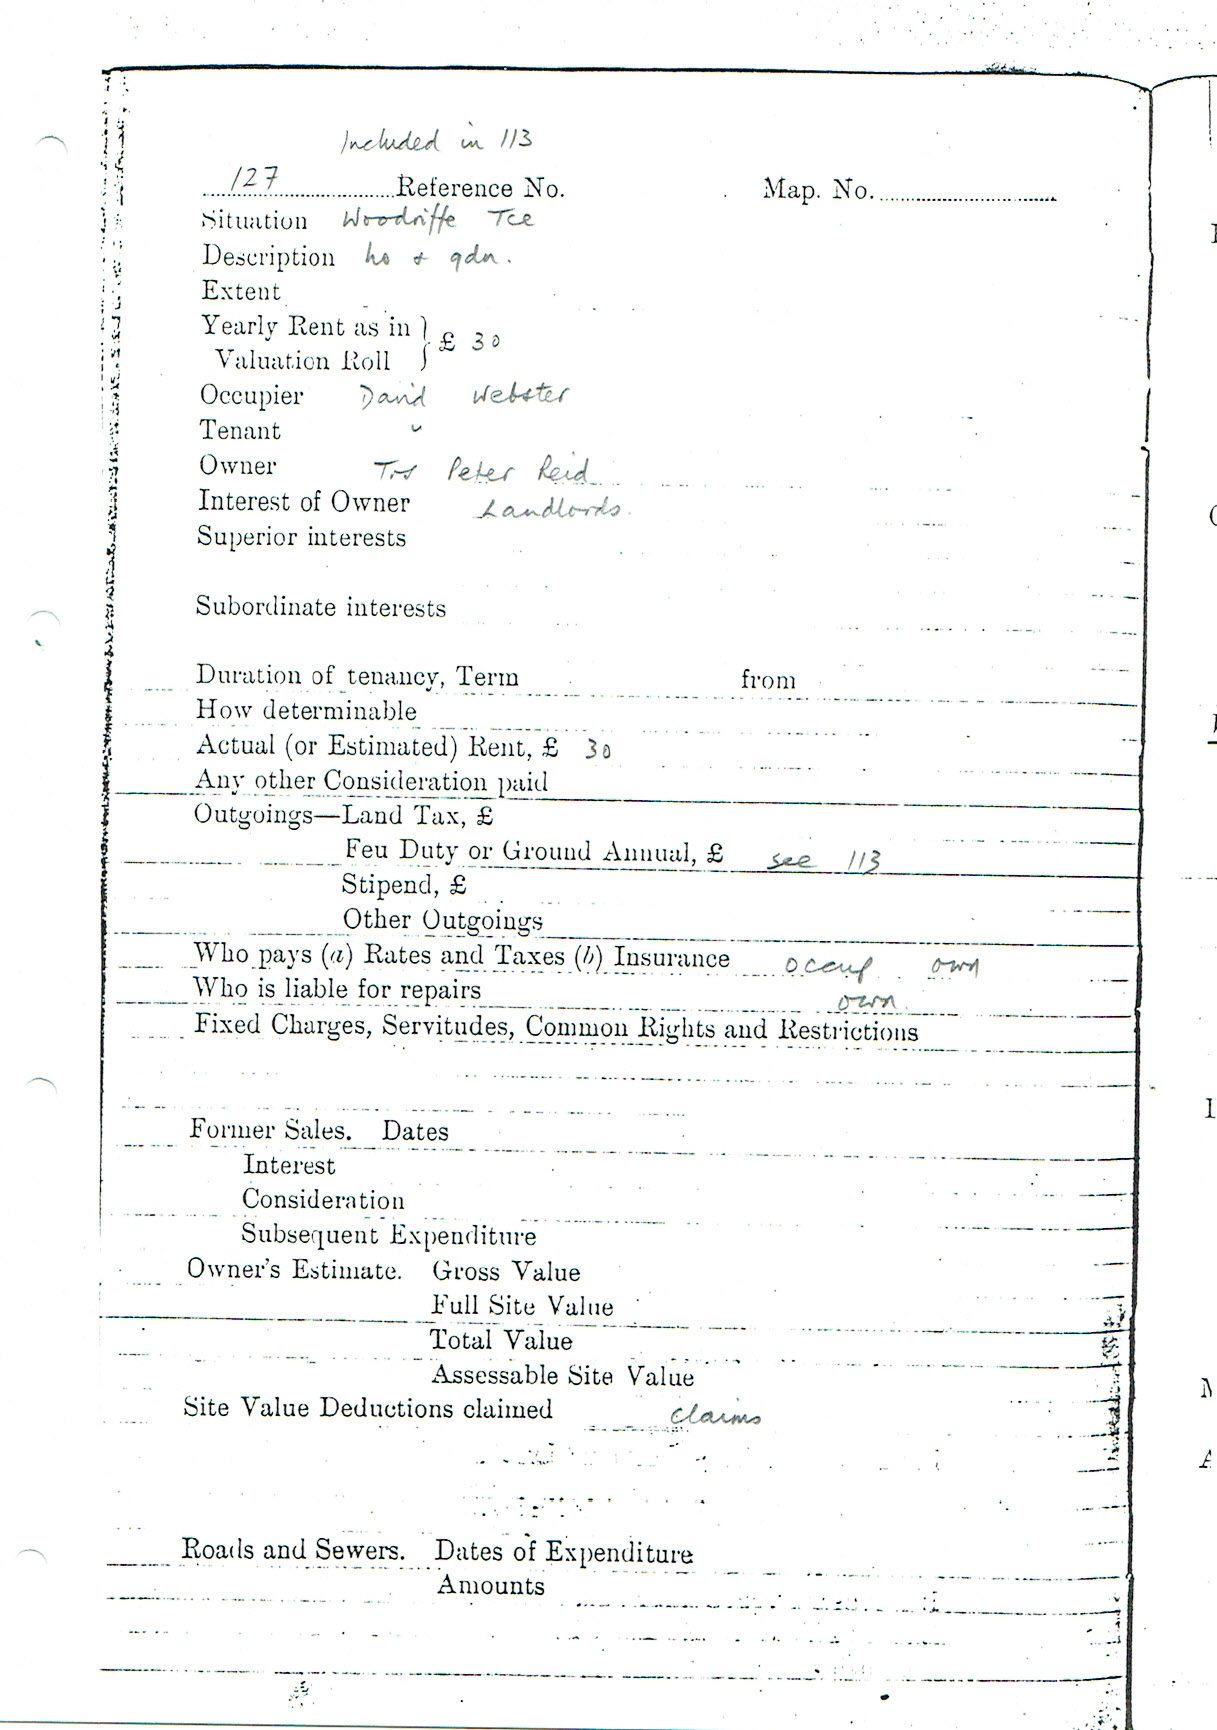 Included in 113
127 Reference No. Map. No.
Situation Woodriffe Tce
Description ho & gdn.
Extent
Yearly Rent as in
Valuation Roll } £ 30
Occupier David Webster
Tenant "
Owner Trs Peter Reid
Interest of Owner Landlords.
Superior interests
Subordinate interests
Duration of tenancy, Term from
How determinable
Actual (or Estimated) Rent, £ 30
Any other Consideration paid
Outgoings—Land Tax, £
Feu Duty or Ground Annual, £ see 113
Stipend, £
Other Outgoings
Who pays (a) Rates and Taxes (b) Insurance occup own
Who is liable for repairs own
Fixed Charges, Servitudes, Common Rights and Restrictions
Former Sales. Dates
Interest
Consideration
Subsequent Expenditure
Owner's Estimate. Gross Value
Full Site Value
Total Value
Assessable Site Value
Site Value Deductions claimed claims
Roads and Sewers. Dates of Expenditure
Amounts